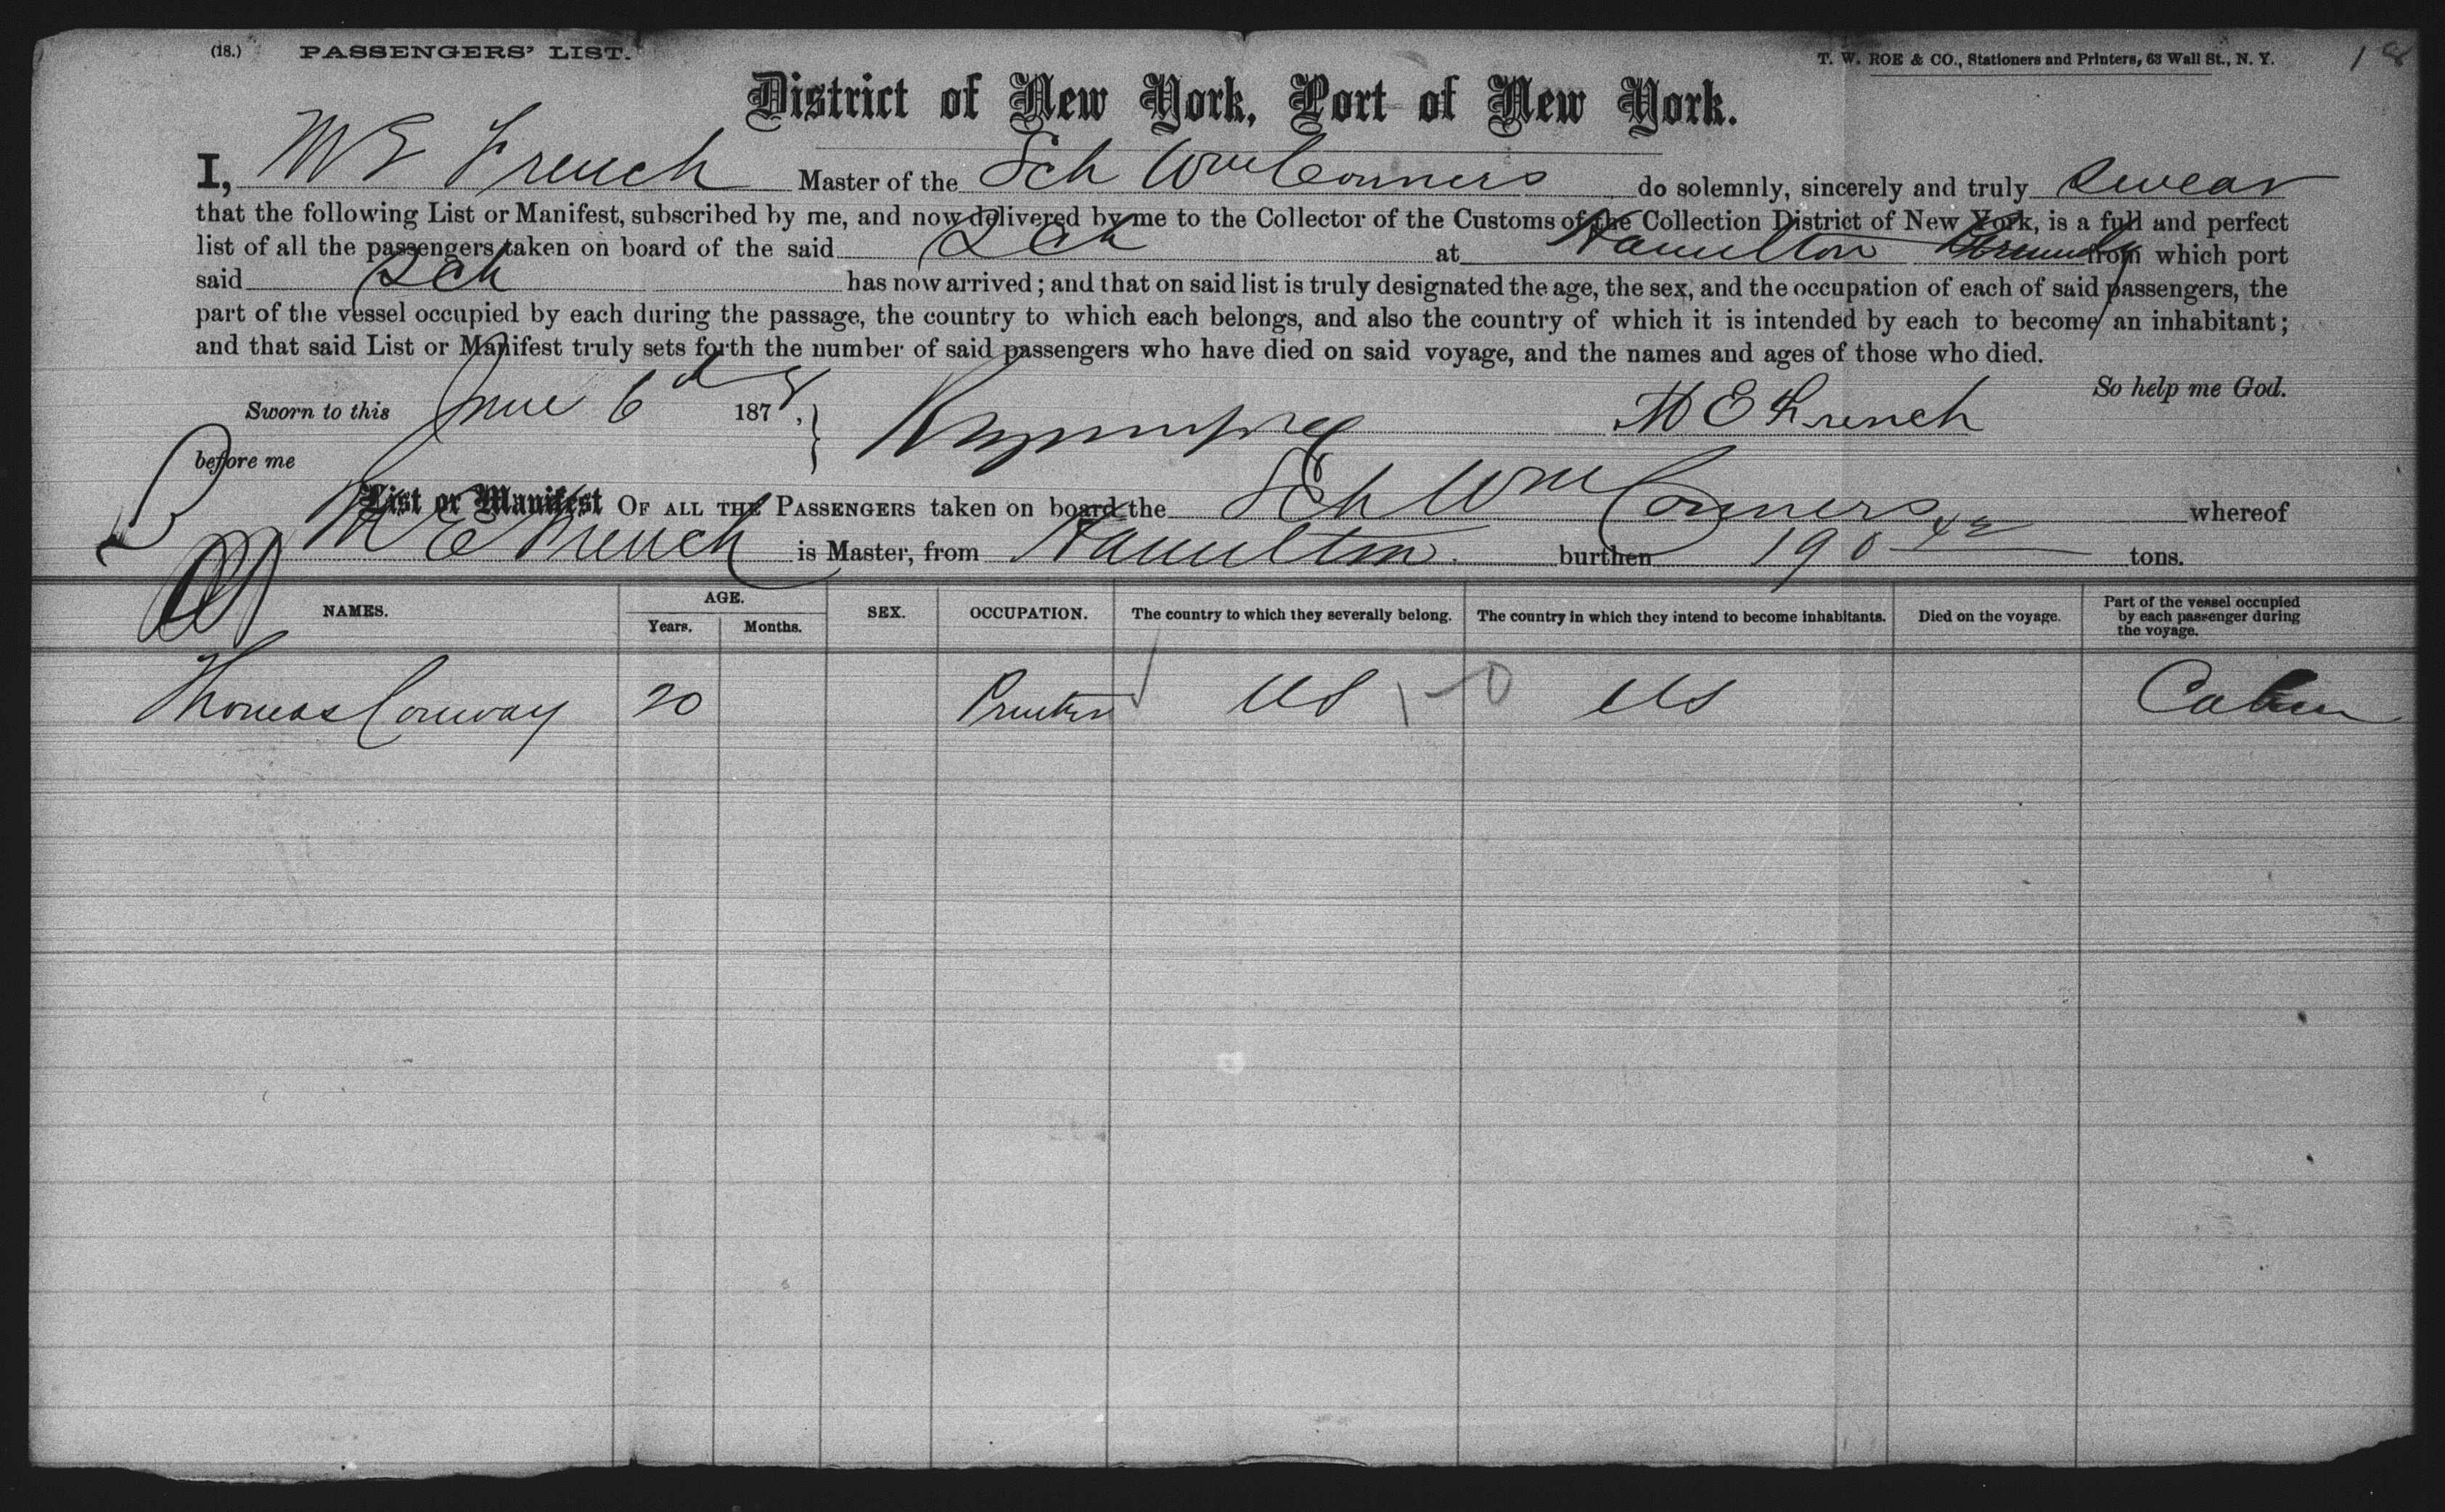 (18.) PASSENGERS' LIST. T. W. ROE & CO., Stationers and Printers, 63 Wall St., N. Y. 18
District of New York, Port of New York.
I, M E French Master of the Sch Wm Conners do solemnly, sincerely and truly swear
that the following List or Manifest, subscribed by me, and now delivered by me to the Collector of the Customs of the Collection District of New York, is a full and perfect
list of all the passengers taken on board of the said Sch at Hamilton from which port
said Sch has now arrived; and that on said list is truly designated the age, the sex, and the occupation of each of said passengers, the
part of the vessel occupied by each during the passage, the country to which each belongs, and also the country of which it is intended by each to become an inhabitant;
and that said List or Manifest truly sets forth the number of said passengers who have died on said voyage, and the names and ages of those who died.
So help me God.
Sworn to this June 6 1878, M E French
before me
List or Manifest OF ALL THE PASSENGERS taken on board the Sch Wm Conners whereof
M E French is Master, from Hamilton. burthen 190 42 tons.
NAMES. AGE. Years. Months. SEX. OCCUPATION. The country to which they severally belong. The country in which they intend to become inhabitants. Died on the voyage. Part of the vessel occupied by each passenger during the voyage.
Thomas Conway 20 Printer US US Cabin